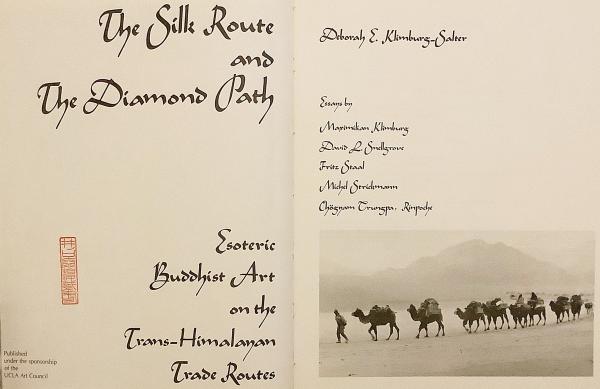 The Silk Route
and
The Diamond Path
Esoteric
Buddhist Art
on the
Trans-Himalayan
Trade Routes
Published
under the sponsorship
of the
UCLA Art Council
Deborah E. Klimburg-Salter
Essays by
Maximilian Klimburg
David L. Snellgrove
Fritz Staal
Michel Strickmann
Chögyam Trungpa, Rinpoche